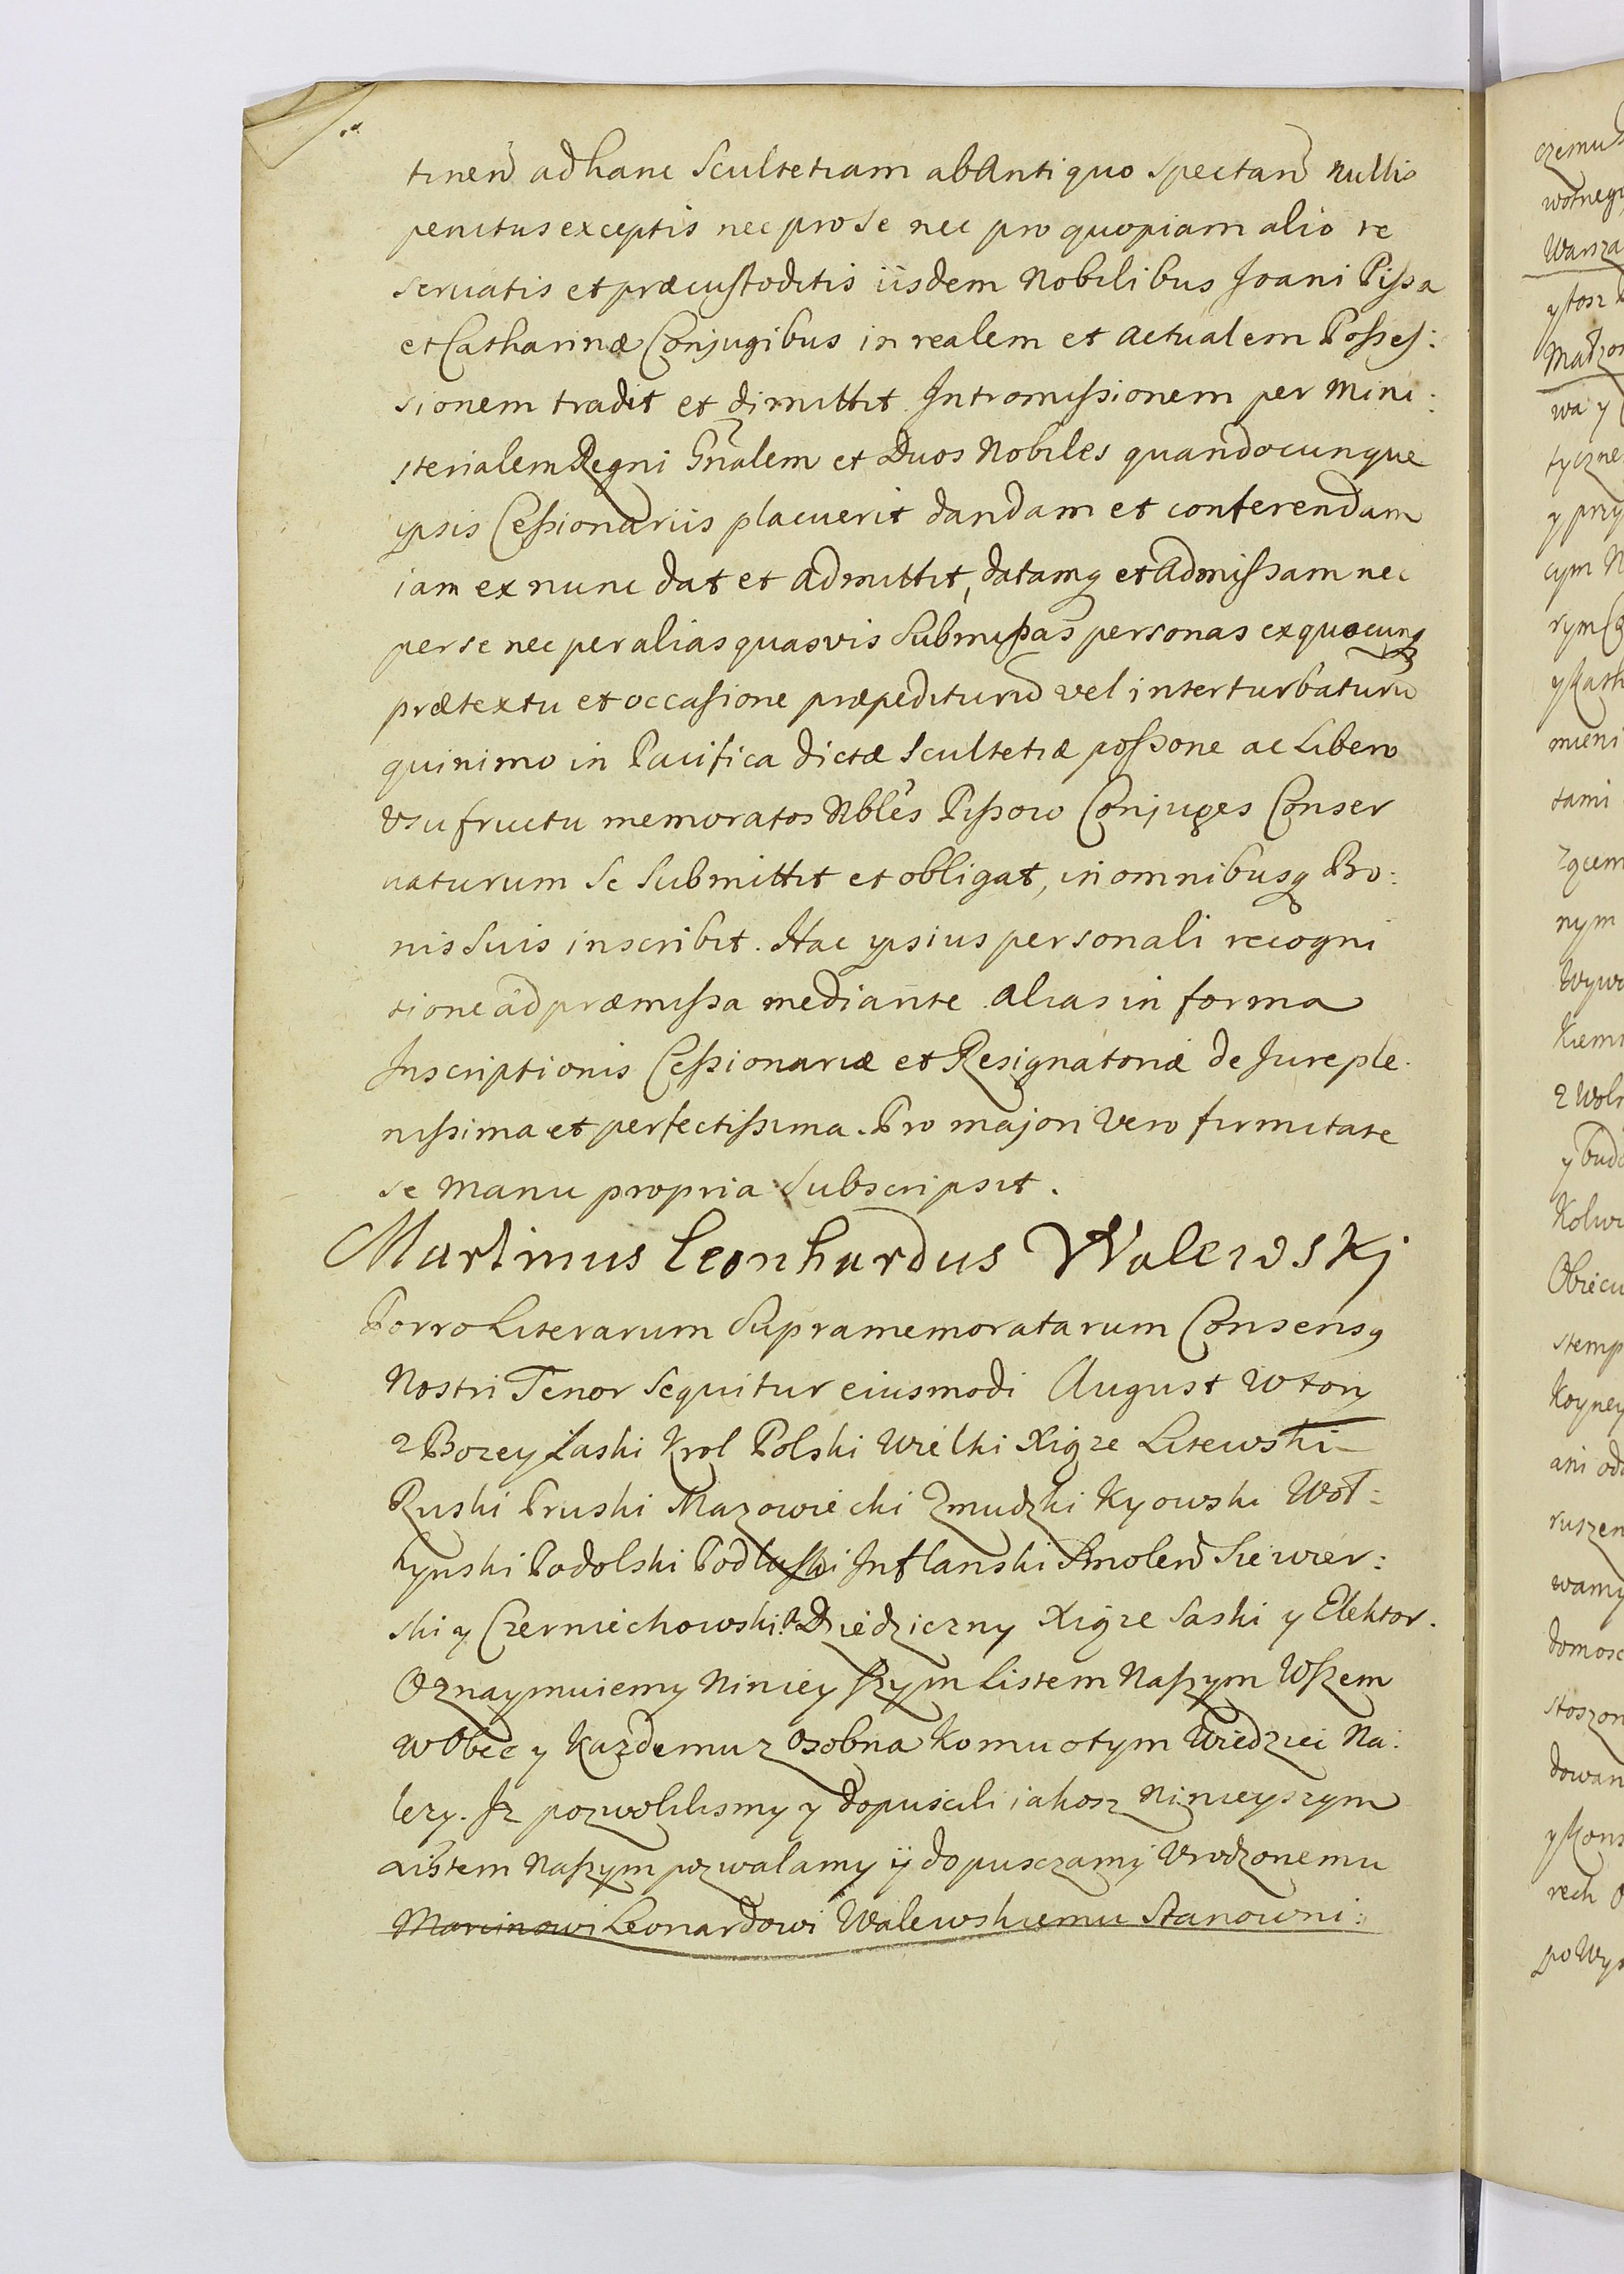 tinen̄ ad hanc Scultetiam ab Antiquo Spectan̄ nullis
penitus exceptis nec pro se nec pro quopiam alio re
servatis et præcustoditis iisdem Nobilibus Joani Pissa
et Catharinæ Conjugibus in realem et actualem Posses:
sionem tradit et dimittit. Intromissionem per Mini:
sterialem Regni Gn̄alem et Duos Nobiles quandocunque
ipsis Cessionariis placuerit dandam et conferendam
iam ex nunc dat et admittit, datamq et Admissam nec
per se nec per alias quasvis Submissas personas ex quocunq
prætextu et occasione præpediturū vel interturbaturū
quinimo in Pacifica dictæ Scultetiæ possone ac Libero
Usufructu memoratos Nbles Pissow Conjuges Conser
vaturum Se Submittit et obligat, in omnibusq Bo:
nis Suis inscribit. Hac ipsius personali recogni
tione ad præmissa mediante alias in forma
Inscriptionis Cessionariæ et Resignatoriæ de Jure ple
nissima et perfectissima. Pro majori vero firmitate
se manu propria Subscripsit.
Martinus Leonhardus Walewskj
Porro Literarum Supramemoratarum Consensq
Nostri Tenor Sequitur eiusmodi August Wtory
z Bozey Łaski Krol Polski Wielki Xiąze Litewski
Ruski Pruski Mazowiecki Zmudzki Kyowski Woł:
hynski Podolski Podlaski Inflanski Smolen̄ Siewier:
ski y Czerniechowski. A Dziedziczny Xiąze Saski y Elektor.
Oznaymuiemy Ninieyszym Listem Naszym Wszem
Wobec y Kazdemu z Osobna Komu o tym Wiedziec Na:
lezy. Iz pozwolilismy y dopuscili iakosz Ninieyszym
Listem Naszym pozwalamy ÿ dopusczamy Urodzonemu
Marcinowi Leonardowi Walewskiemu Stanowni: